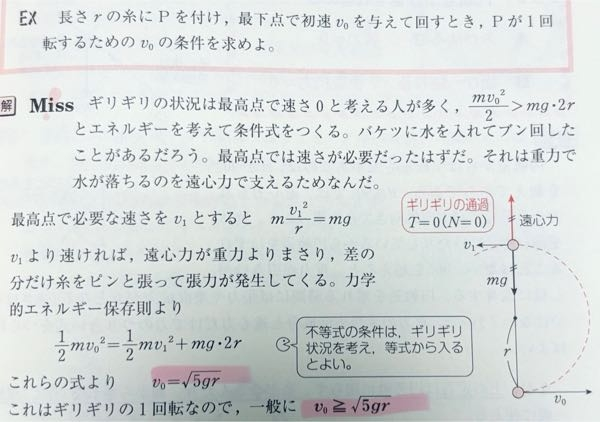 EX 長さ r の糸に P を付け，最下点で初速 v₀ を与えて回すとき，P が 1 回
転するための v₀ の条件を求めよ。
解 Miss ギリギリの状況は最高点で速さ 0 と考える人が多く，mv₀²/2 > mg・2r
とエネルギーを考えて条件式をつくる。バケツに水を入れてブン回した
ことがあるだろう。最高点では速さが必要だったはずだ。それは重力で
水が落ちるのを遠心力で支えるためなんだ。
最高点で必要な速さを v₁ とすると m v₁²/r = mg
v₁ より速ければ，遠心力が重力よりまさり，差の
分だけ糸をピンと張って張力が発生してくる。力学
的エネルギー保存則より
1/2 mv₀² = 1/2 mv₁² + mg・2r
これらの式より v₀ = √5gr
これはギリギリの 1 回転なので，一般に v₀ ≧ √5gr
不等式の条件は，ギリギリ
状況を考え，等式から入る
とよい。
ギリギリの通過
T = 0 (N = 0)
遠心力
v₁
mg
r
v₀